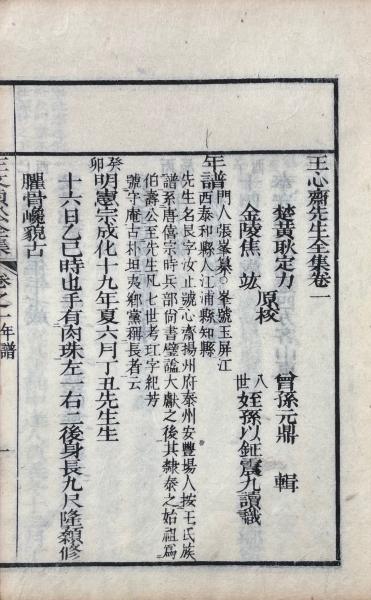 王心齋先生全集卷一
楚黃耿定力
金陵焦竑
原校
曾孫元鼎輯
八世姪孫以鉦震九讀識
年譜
門人張峯纂○峯號玉屏江
西泰和縣人江浦縣知縣
先生名艮字汝止號心齋揚州府泰州安豐場人按王氏族
譜系唐僖宗時兵部尚書璧謚大獻之後其隸泰之始祖爲
伯壽公至先生凡七世考玒字紀芳
號守庵古朴坦夷鄉黨稱長者云
癸卯
明憲宗成化十九年夏六月丁丑先生生
十六日乙巳時也手有肉珠左一右二後身長九尺隆顙修
臞骨巉貌古
王文貞公全集
卷之一年譜
一